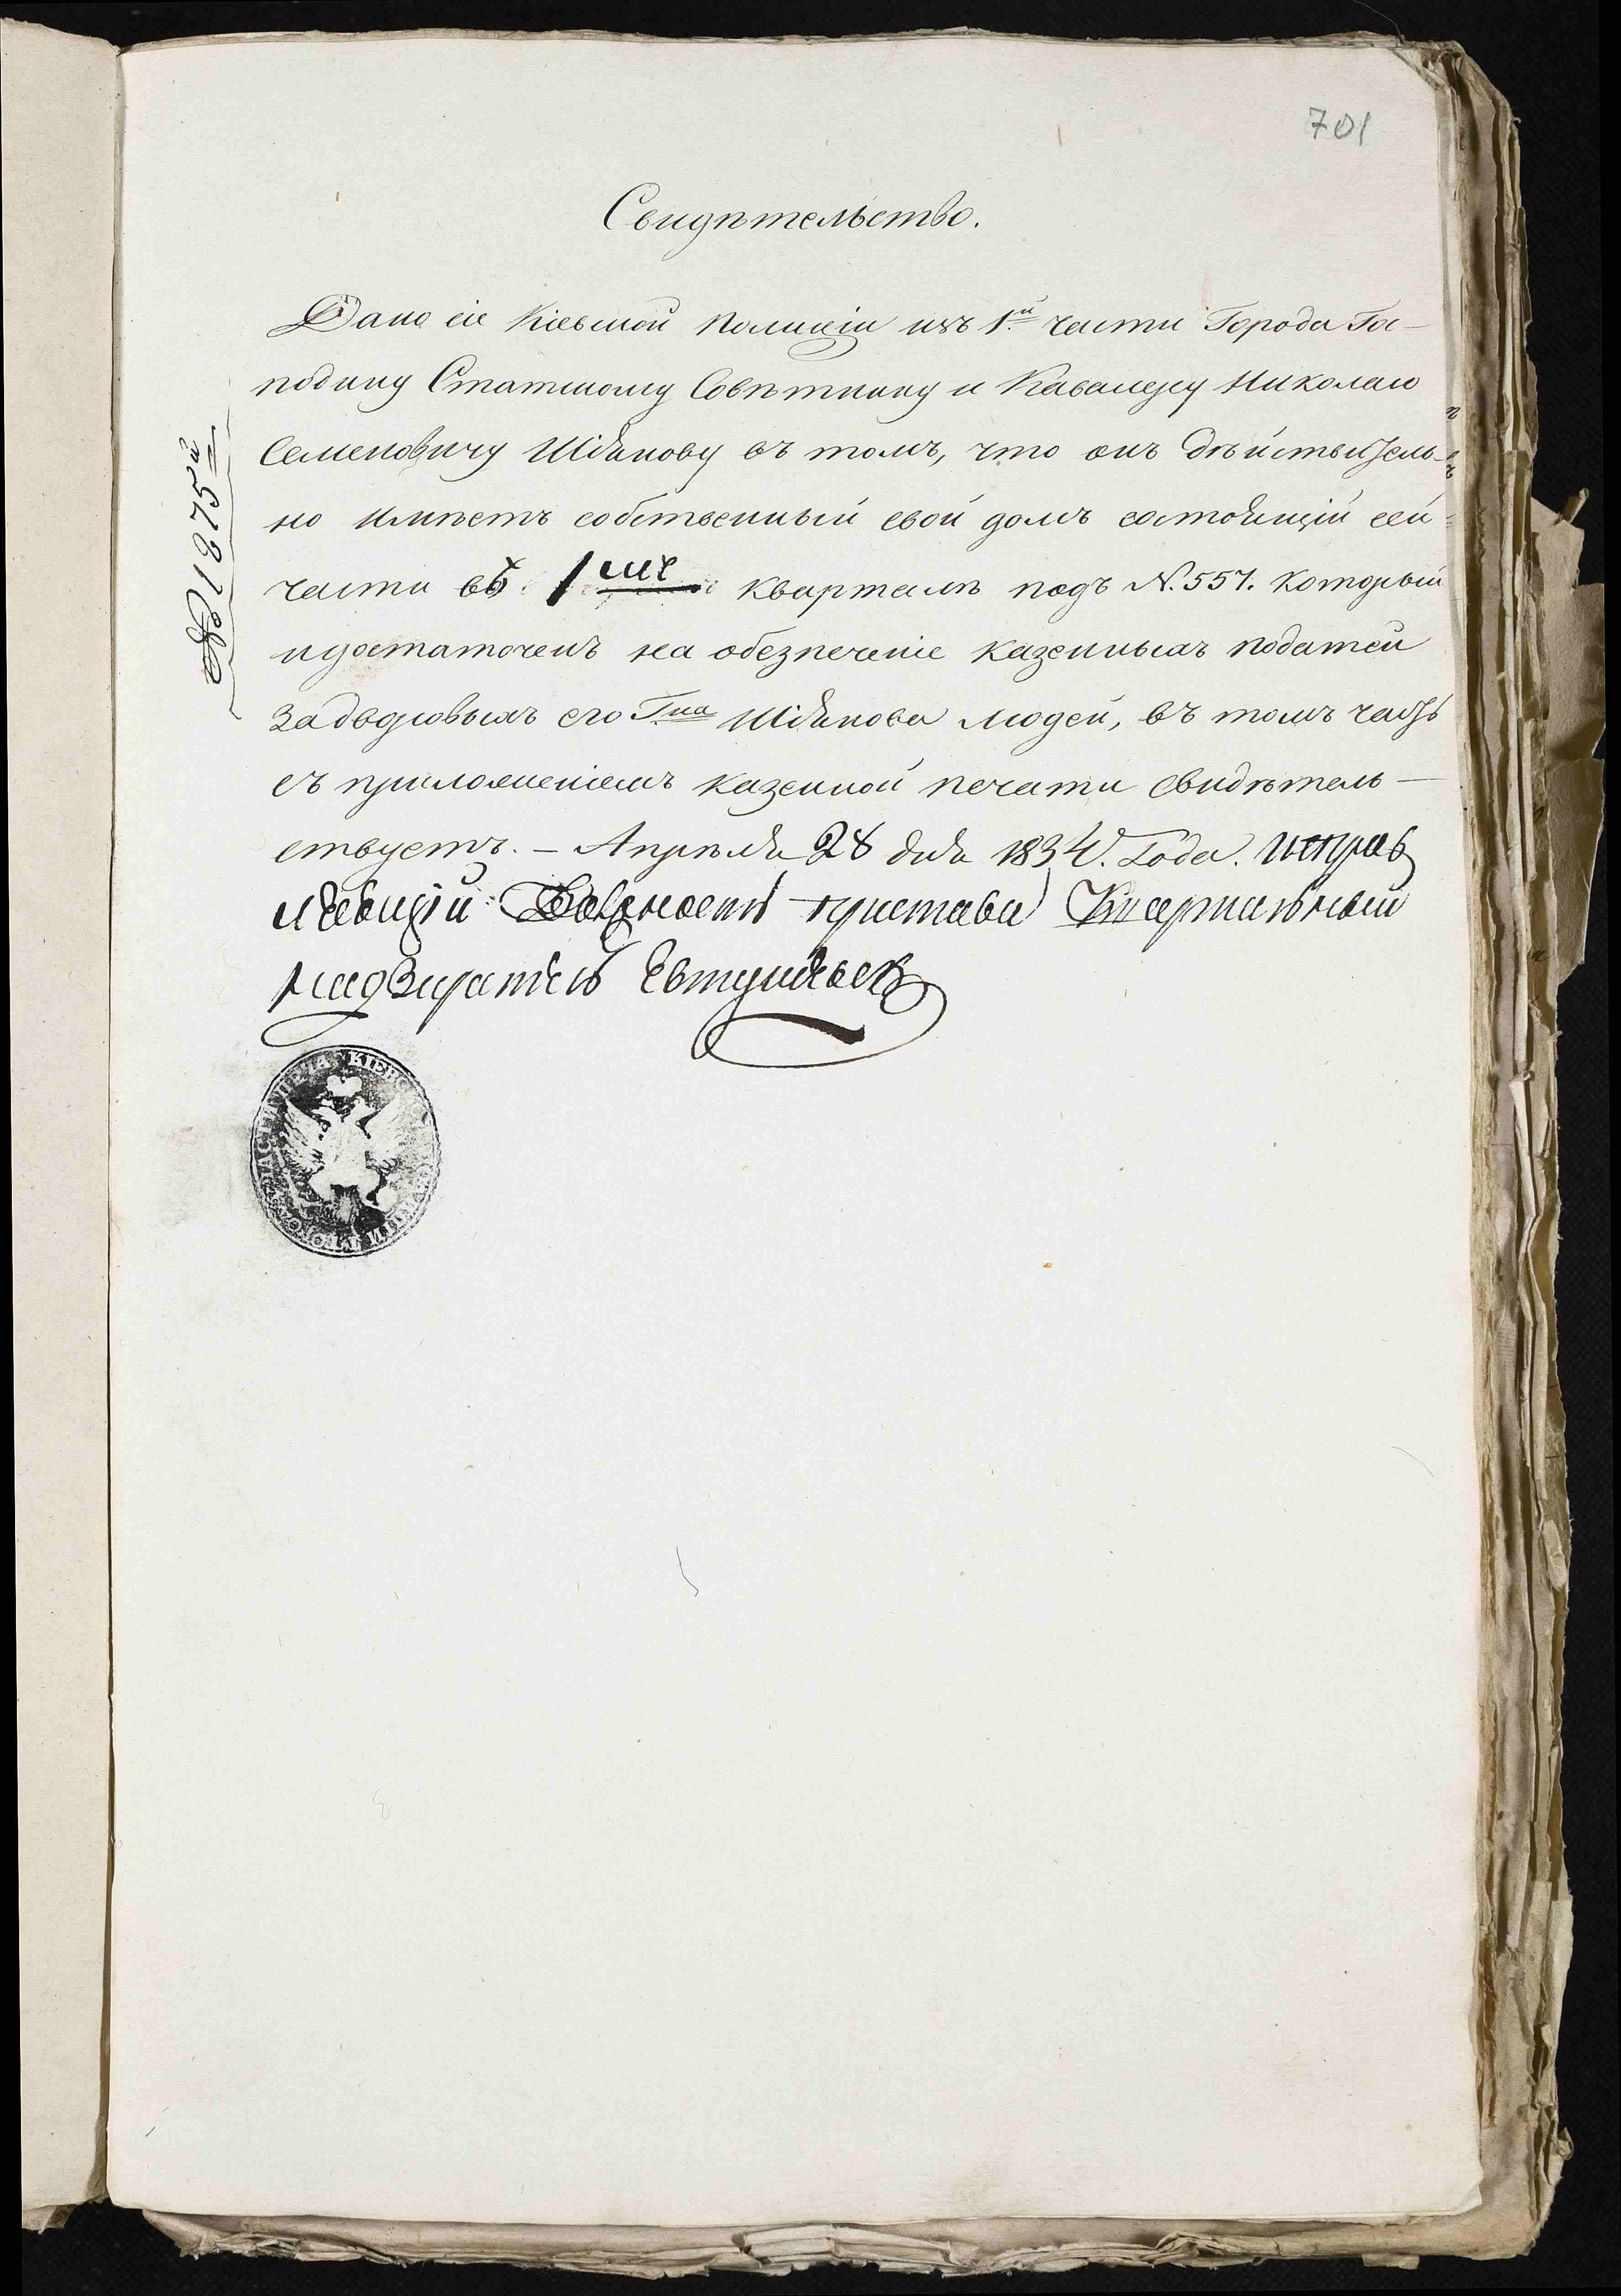 701
Свидѣтельство.
Дано сіе Кіевской Полиціи изъ 1й части Города Гос-
подину Статскому Совѣтнику и Кавалеру Николаю
Семеновичу Шіянову въ томъ, что онъ дѣйствитель-
но имѣетъ собственный свой домъ состоящій сей
части въ 1мъ кварталѣ подъ N. 557. который
и достаточенъ на обезпеченіе казенныхъ податей
за дворовыхъ его Гна Шіянова людей, въ томъ часть
съ приложеніемъ казенной печати свидѣтель-
ствуетъ. — Апрѣля 28 дня 1834. Года. исправ
ляющій Должность пристава Квартальный
надзиратель
№ 1275й